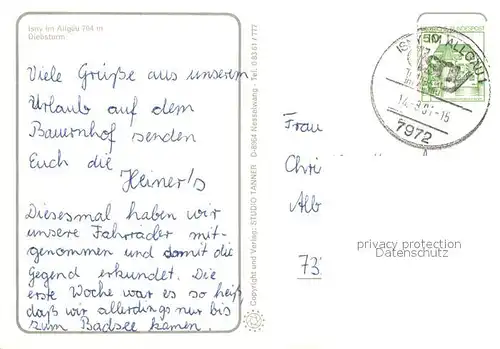 Isny im Allgäu 704 m
Diebsturm.
Viele Grüße aus unserem
Urlaub auf dem
Bauernhof senden
Euch die
Heiner's
Diesesmal haben wir
unsere Fahrräder mit-
genommen und damit die
Gegend erkundet. Die
erste Woche war es so heiß
daß wir allerdings nur bis
zum Badsee kamen.
Copyright und Verlag: STUDIO TANNER D-8964 Nesselwang · Tel. 0 83 61 / 777
ISNY IM ALLGÄU 1
7972
50
BUNDESPOST
Frau
Chri
Alb
73
privacy protection
Datenschutz